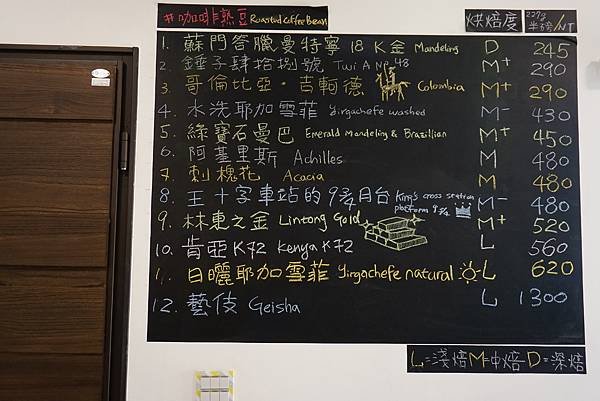 #咖啡熟豆 Roasted Coffee Beans 烘焙度 227g/半磅/NT
1. 蘇門答臘曼特寧 18K金 Mandeling D 245
2. 錘子肆拾捌號 Twi A No.48 M⁺ 290
3. 哥倫比亞·吉軻德 Colombia M⁺ 290
4. 水洗耶加雪菲 Yirgachefe washed M⁻ 430
5. 綠寶石曼巴 Emerald Mandeling & Brazillian M⁺ 450
6. 阿基里斯 Achilles M 480
7. 刺槐花 Acacia M 480
8. 王十字車站的9¾月台 King's cross station platform 9¾ M⁻ 480
9. 林東之金 Lintong Gold M⁺ 520
10. 肯亞K72 Kenya K72 L 560
11. 日曬耶加雪菲 Yirgachefe natural L 620
12. 藝伎 Geisha L 1300
L=淺焙 M=中焙 D=深焙